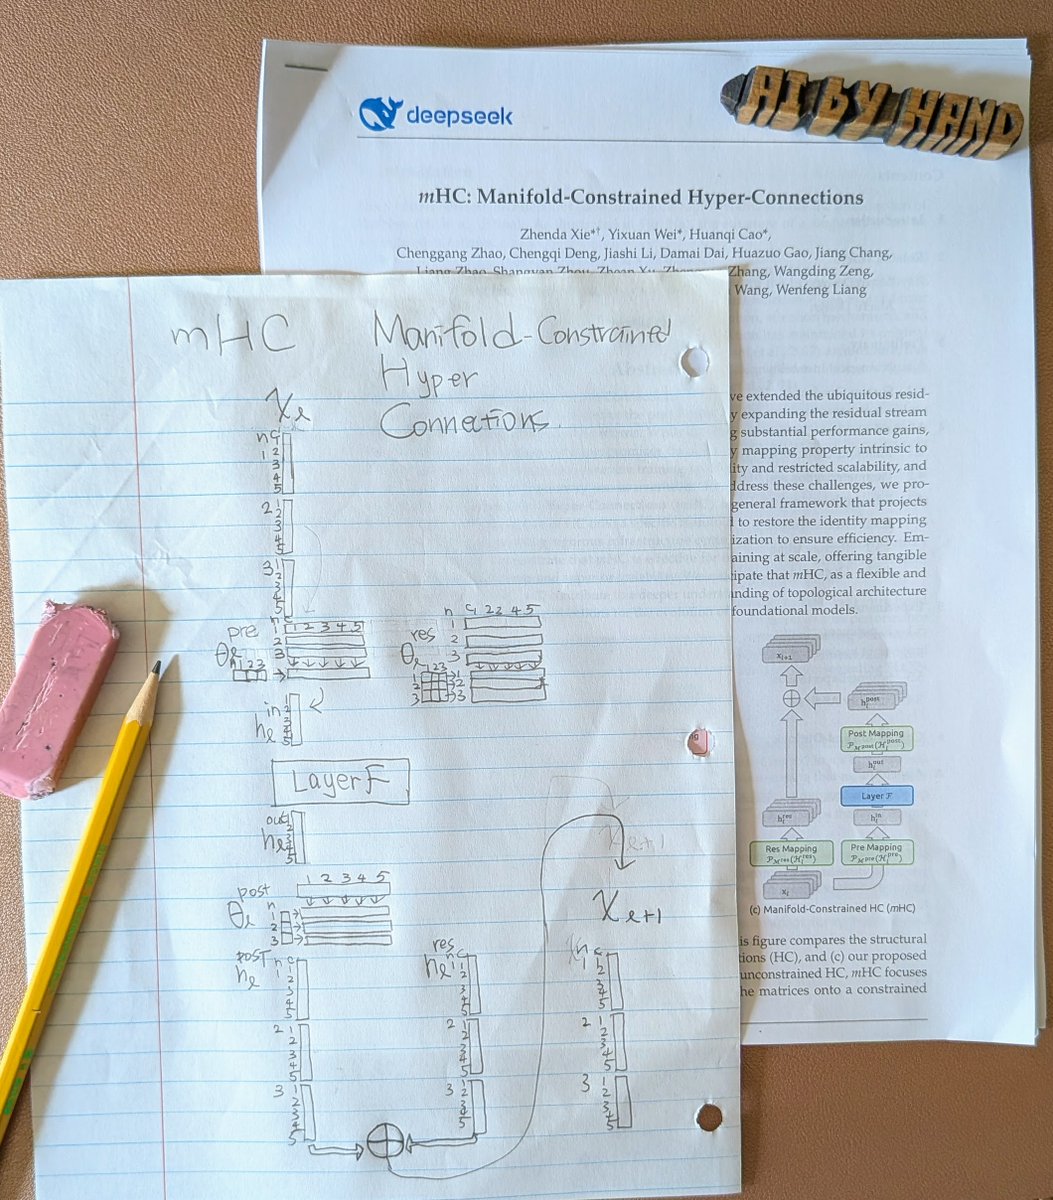 deepseek
AI by HAND
mHC: Manifold-Constrained Hyper-Connections
Zhenda Xie*†, Yixuan Wei*, Huanqi Cao*,
Chenggang Zhao, Chengqi Deng, Jiashi Li, Damai Dai, Huazuo Gao, Jiang Chang,
Liang Zhao, Shangyan Zhou, Zhean Xu, Zhang, Wangding Zeng,
Wang, Wenfeng Liang
ve extended the ubiquitous resid-
y expanding the residual stream
g substantial performance gains,
y mapping property intrinsic to
ity and restricted scalability, and
ddress these challenges, we pro-
general framework that projects
to restore the identity mapping
ization to ensure efficiency. Em-
aining at scale, offering tangible
ipate that mHC, as a flexible and
nding of topological architecture
foundational models.
x_{l+1}
h_l^{post}
Post Mapping
P_{M^{post}}(H_l^{post})
h_l^{out}
Layer F
h_l^{res}
h_l^{in}
Res Mapping
P_{M^{res}}(H_l^{res})
Pre Mapping
P_{M^{pre}}(H_l^{pre})
x_l
(c) Manifold-Constrained HC (mHC)
is figure compares the structural
tions (HC), and (c) our proposed
unconstrained HC, mHC focuses
he matrices onto a constrained
mHC Manifold-Constrained
Hyper
Connections.
x_l
n C
1 2
3
4
5
2 1
2
3
4
5
3 1
2
3
4
5
pre
θ_l
n C 1 2 3 4 5
1
2
3
n 1 2 3
res
θ_l
n C 1 2 3 4 5
1
2
3
1 2 3
1 1
2 2
3 3
in
h_l
1
2
3
4
5
Layer F
out
h_l
1
2
3
4
5
post
θ_l
1 2 3 4 5
n
1
2
3
post
h_l
n C
1 1
2
3
4
5
2 1
2
3
4
5
3 1
2
3
4
5
res
h_l
n C
1 1
2
3
4
5
2 1
2
3
4
5
3 1
2
3
4
5
x_{l+1}
x_{l+1}
n C
1 1
2
3
4
5
2 1
2
3
4
5
3 1
2
3
4
5